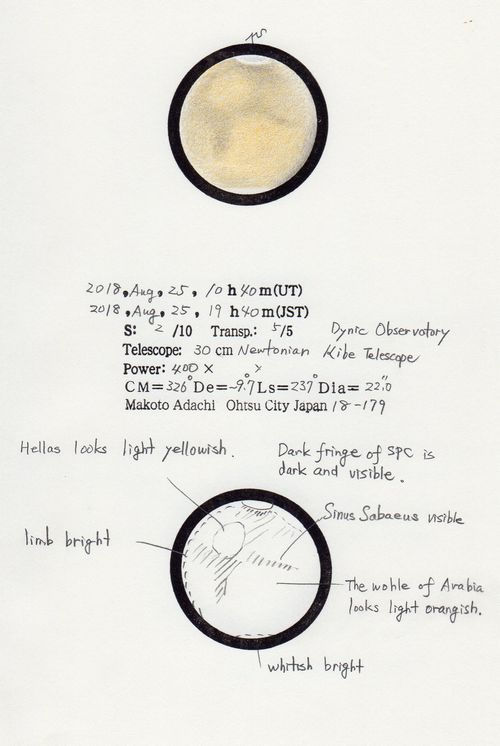 2018, Aug, 25, 10 h 40 m(UT)
2018, Aug, 25, 19 h 40 m(JST)
S: 2 /10 Transp.: 5/5 Dynic Observatory
Telescope: 30 cm Newtonian Kibe Telescope
Power: 400 ×
CM=326° De=-9.7° Ls=237° Dia= 22".0
Makoto Adachi Ohtsu City Japan 18-179
Hellas looks light yellowish.
Dark fringe of SPC is
dark and visible.
Sinus Sabaeus visible
limb bright
The wohle of Arabia
looks light orangish.
whitish bright